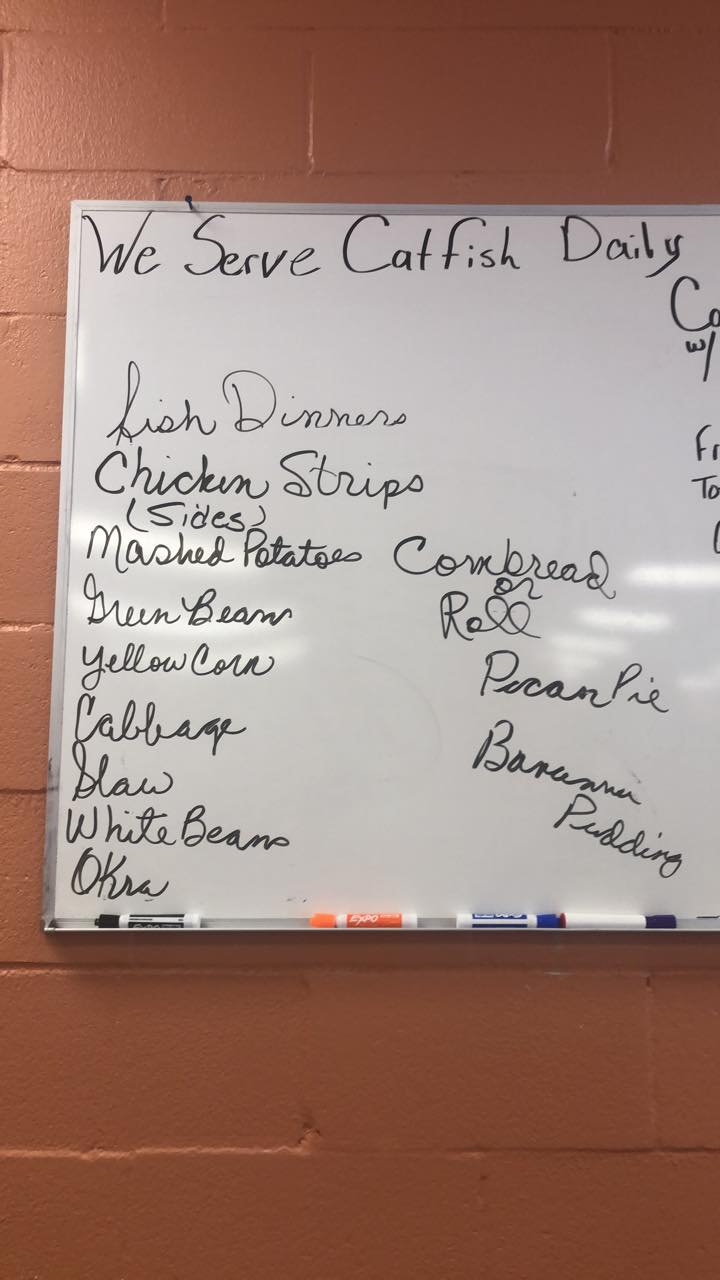 We Serve Catfish Daily
Co
w/
fish Dinners
Chicken Strips
(Sides)
Mashed Potatoes
Green Beans
Yellow Corn
Cabbage
Slaw
White Beans
OKra
Cornbread
or
Roll
Pecan Pie
Bananna
Pudding
Fr
To
EXPO